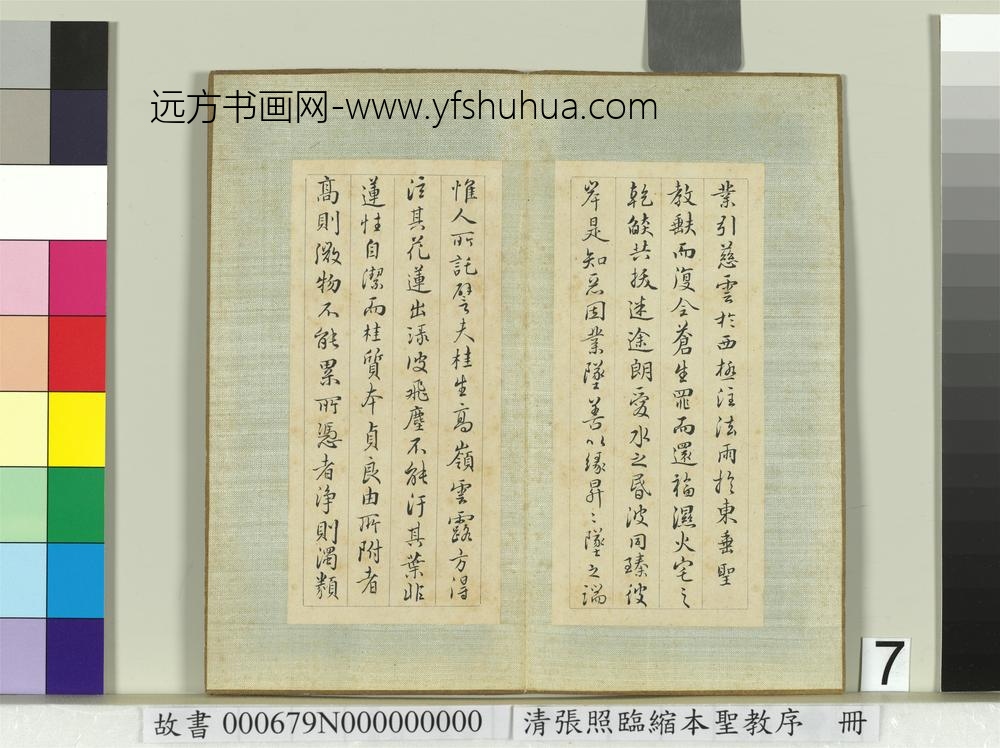 远方书画网-www.yfshuhua.com
業引慈雲於西極注法雨於東垂聖
教缺而復全蒼生罪而還福濕火宅之
乾燄共拔迷途朗愛水之昏波同臻彼
岸是知惡因業墜善以緣昇〻墜之端
惟人所託譬夫桂生高嶺雲露方得
泫其花蓮出淥波飛塵不能汙其葉非
蓮性自潔而桂質本貞良由所附者
高則微物不能累所憑者淨則濁類
7
故書 000679N000000000 清張照臨縮本聖教序 冊